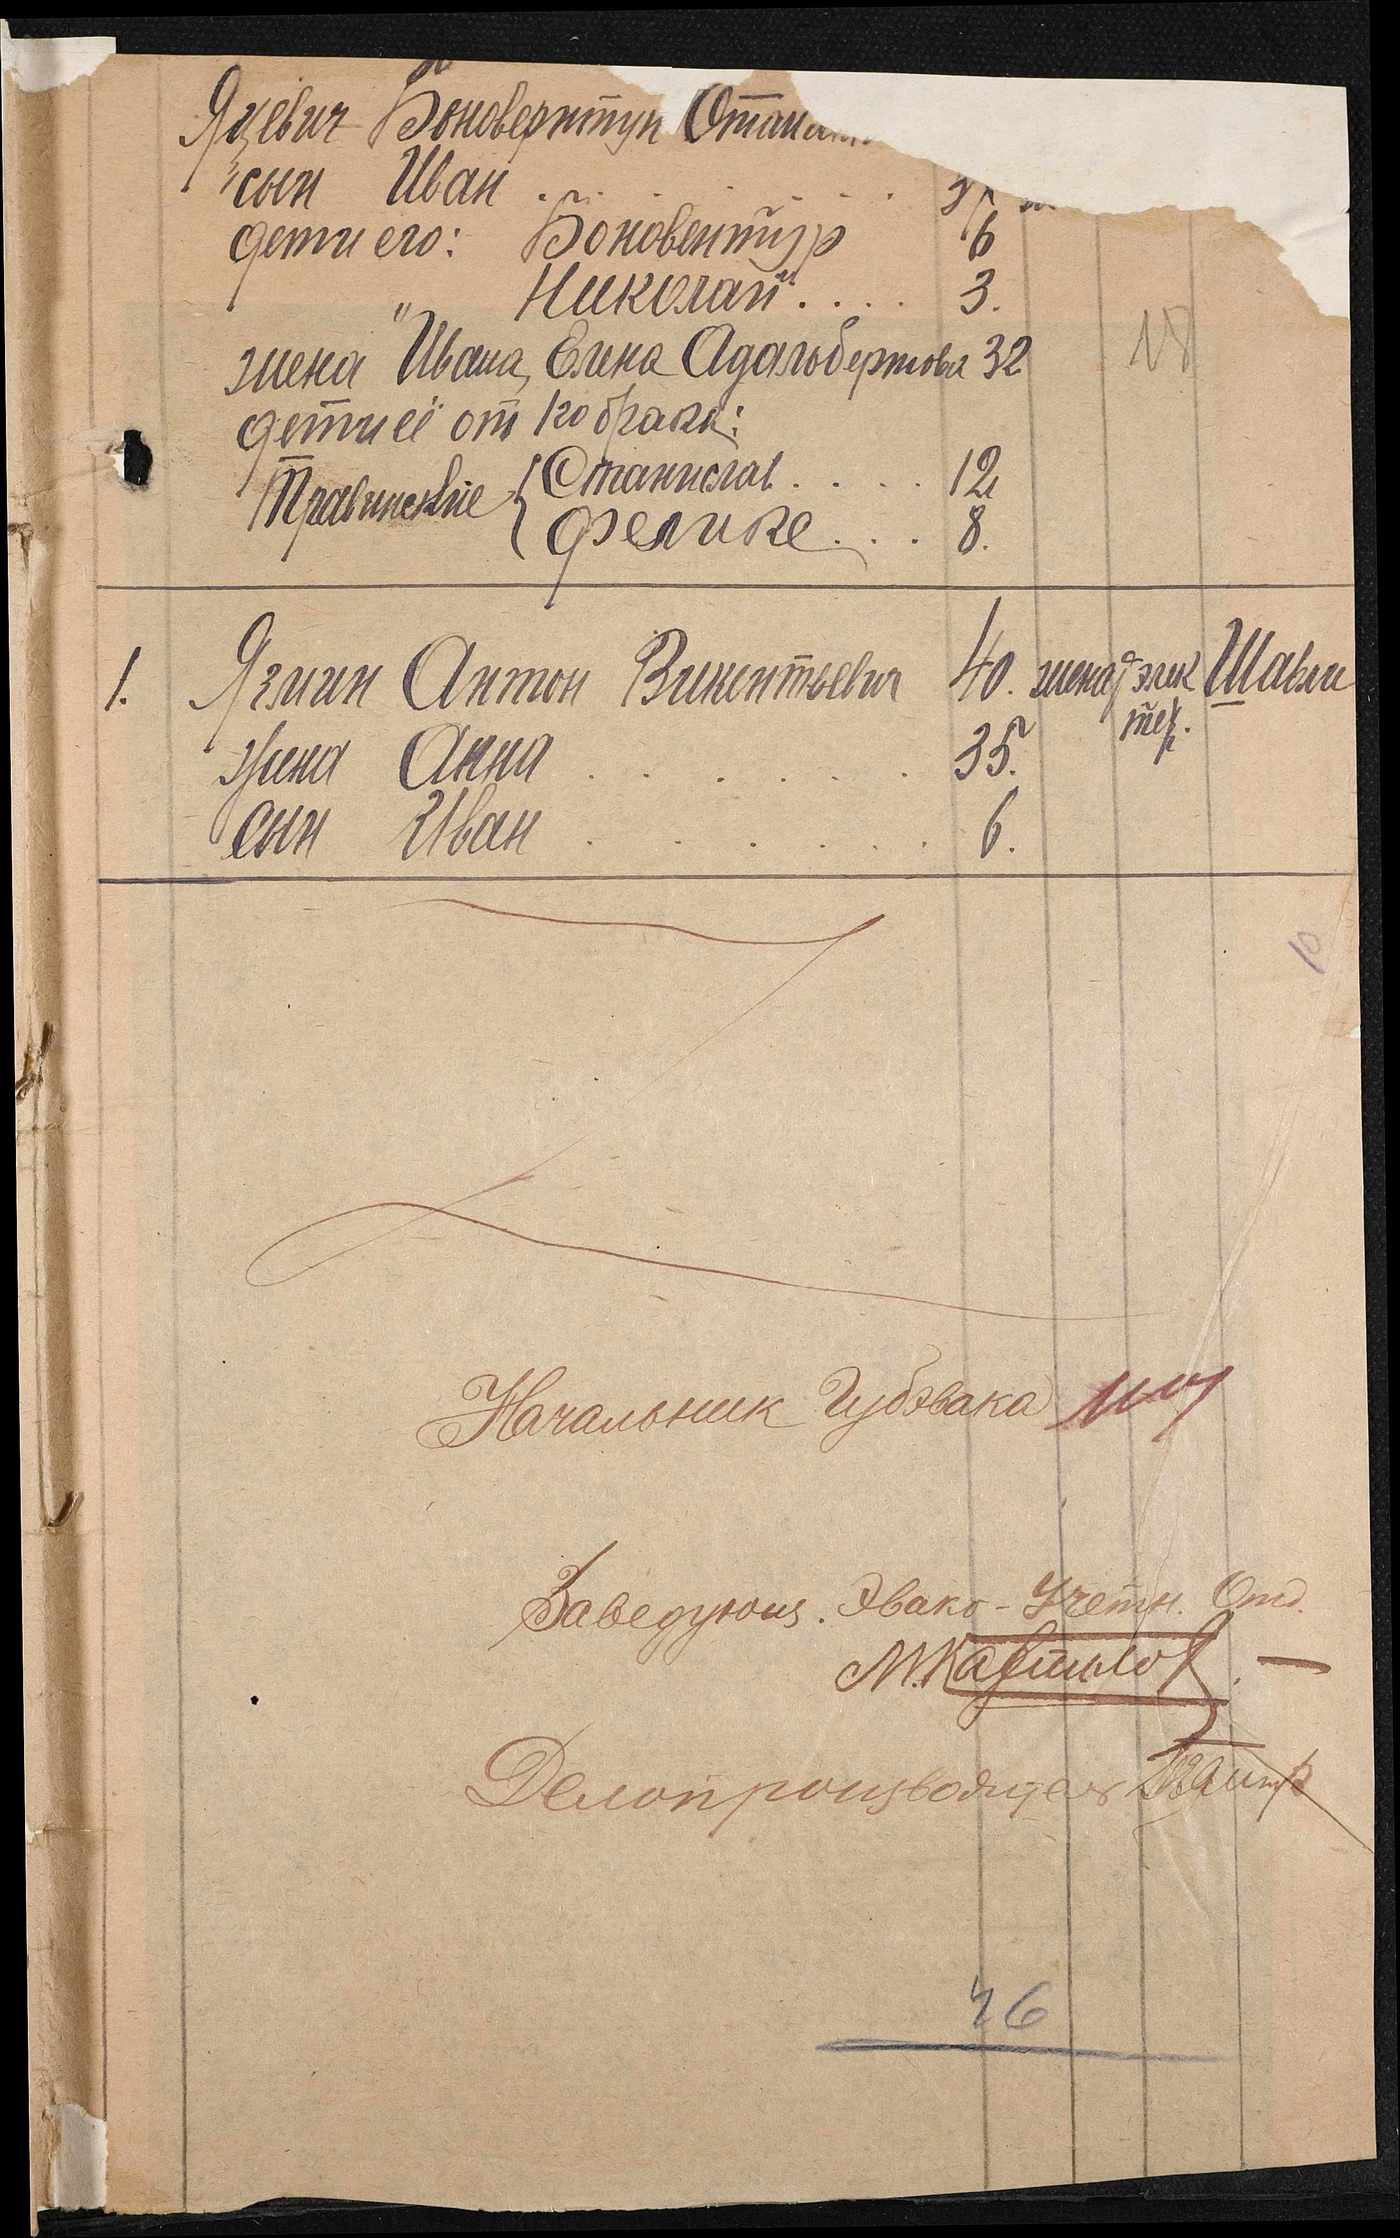 Яцевич Боновентур Стани
сын Иван . . . . . . 37
дети его: Боновентур 6
Николай . . . . 3.
жена Ивана, Елена Адальбертова 32
дети её от 1го брака:
Травинские { Станислав . . . . 12
Феликс . . . 8.
1. Язмин Антон Викентьевич 40. женат элек Шавли
тех.
жена Анна . . . . . . 35.
сын Иван . . . . . . 6.
10
Начальник Губэвака
Заведующ. Эвако-Учетн. Отд.
Делопроизводитель
46